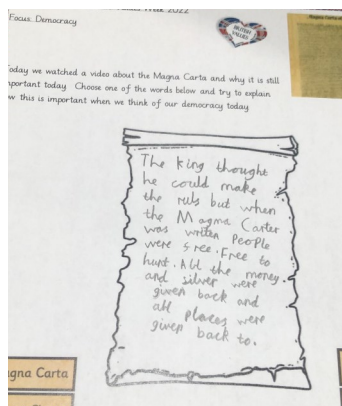 2022
Focus: Democracy
BRITISH
VALUES
Today we watched a video about the Magna Carta and why it is still
important today. Choose one of the words below and try to explain
how this is important when we think of our democracy today
The king thought
he could make
the ruls but when
the Magna Carter
was writen People
were free. Free to
hunt. All the money
and silver were
given back and
all places were
given back to.
agna Carta